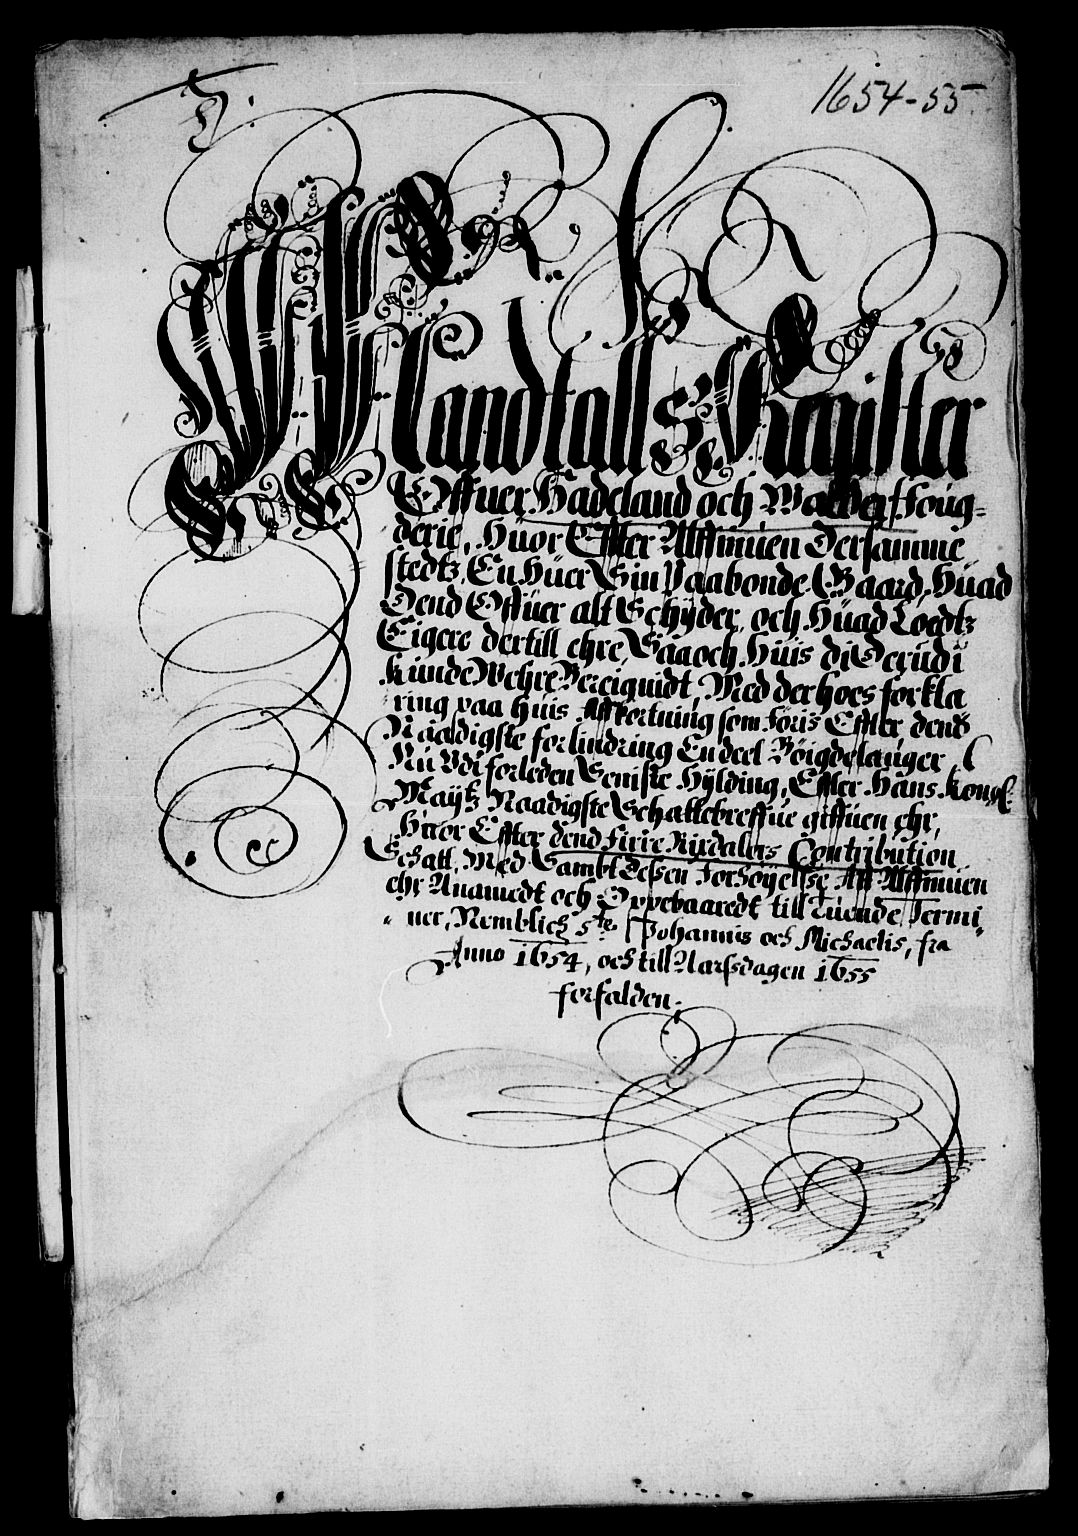 1654-55
Mandtalls Register
Offuer Hadeland och Walders foug-
derie, Huor Effter Allmuen Dersamme
stedtz, En Huer Sin Paabonde Gaard, Huad
Dend Offuer alt Schÿder, och Huad Loedtz
Eigere dertill ehre, Saa och Huis di Derudi
kunde Wehre Bereiguidt, Med derhoes forkla
ring paa huis Affkortning som föris Effter dend
Naadigste forlindring En deel Böigdelauger
Nu Udi forleden Seniste Hÿlding, Effter Hans Kongl:
Maÿtz Naadigste Schattebreffue giffuen ehr,
Huor Effter dend firie Rixdalers Contribution
Schatt, Med Sambt Dessen Forhöyelse Aff Allmuen
ehr Anamedt och Oppebaaredt till Tuende Termi
ner, Nemblich Ste Johannis och Michaelis, fra
Anno 1654, och till Aarssdagen 1655
forfalden: